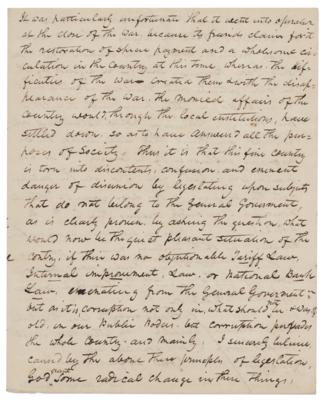 It was particularly unfortunate that it went into operation
at the close of the war, because its friends claim for it
the restoration of specie payment and a wholesome cir-
culation in the country, at this time, whereas the dif-
ficulties of the war created them & with the disap-
pearance of the war, the monied affairs of the
Country would, through the local institutions, have
settled down, so as to have answered all the pur-
poses of Society. Thus it is that this fine country
is torn into discontents, confusion, and eminent
danger of disunion by legislating upon subjects
that do not belong to the General Government,
as is clearly proven by asking the question, what
would now be the quiet pleasant situation of the
country, if there was no objectionable Tariff Law,
Internal improvement, Law, or National Bank
Law, emenating from the General Government—
but as it is, corruption not only in, what should be
old, in our Public bodies, but corruption pervades
the whole country—and mainly, I sincerely believe,
caused by the above three principles of legislation,
God grant some radical change in these things.